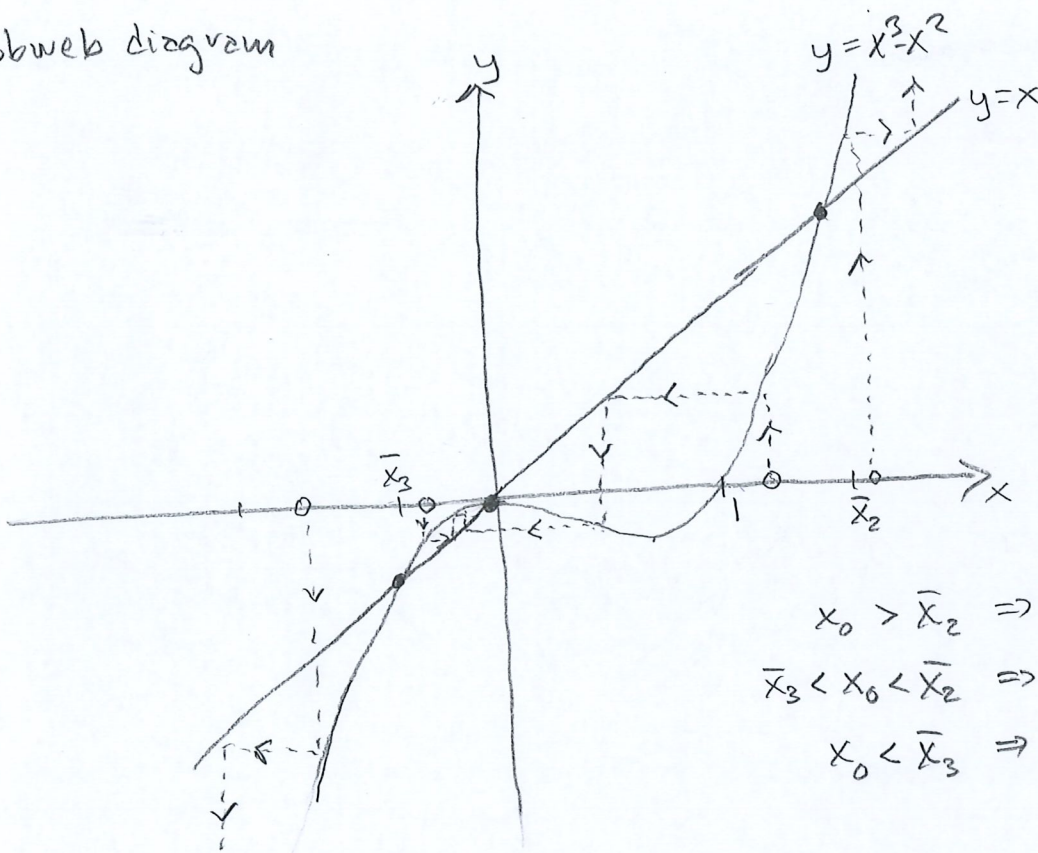 obweb diagram
y = x³-x²
y
y=x
x̄₃
x
1
x̄₂
x₀ > x̄₂ ⇒
x̄₃ < x₀ < x̄₂ ⇒
x₀ < x̄₃ ⇒